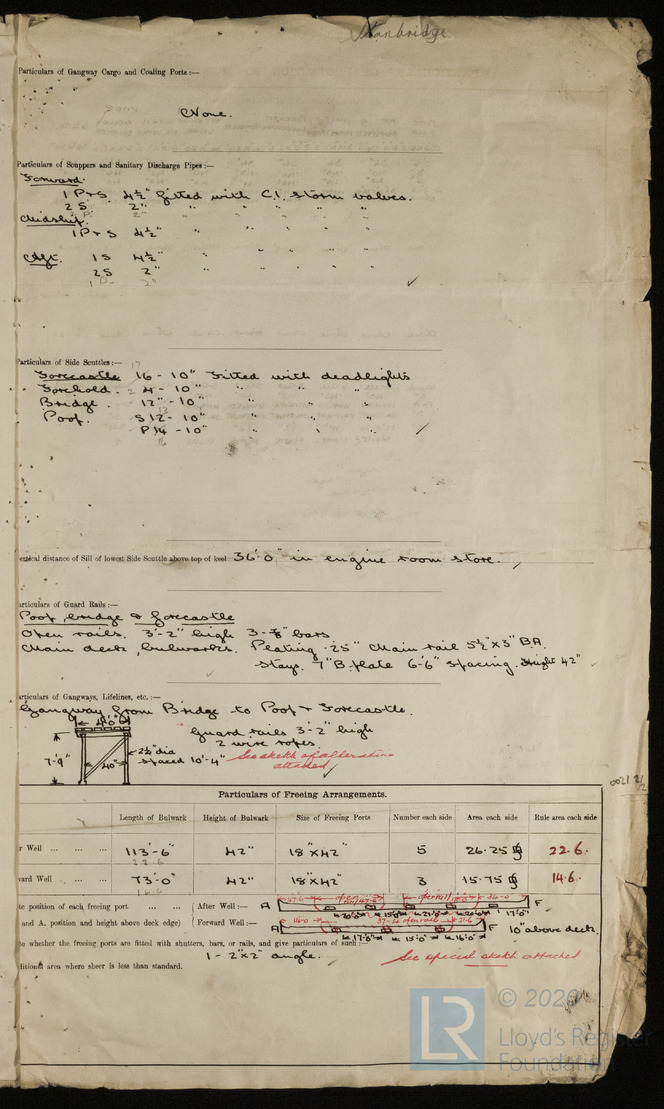 Stanbridge
Particulars of Gangway Cargo and Coaling Ports :—
None.
Particulars of Scuppers and Sanitary Discharge Pipes :—
Forward.
1 P+S. 4½" fitted with C.I. storm valves.
2 S. 2" " " " " "
1 P. 2"
Midship.
1 P+S 4½" " " " " "
Aft. 1S 4½" " " " " "
2S 2" " " " " "
1 P- 2"
Particulars of Side Scuttles :—
Forecastle 16 - 10" Fitted with deadlights
Forehold. 2 4 - 10" " " "
Bridge. 12" - 10" " " "
Poop. S 12 - 10" " " "
P 14 - 10" " " "
16
ertical distance of Sill of lowest Side Scuttle above top of keel 36'0" in engine room store.
articulars of Guard Rails :—
Poop, bridge & forecastle
Open rails. 3'-2" high 3-⅞" bars
Main deck, bulwarks. Plating .25" Main rail 5½"x3" B.A.
Stays. 7" B. plate 6'-6" spacing. Height 42"
articulars of Gangways, Lifelines, etc. :—
Gangway from Bridge to Poop + Forecastle.
4'0"
Guard rails 3'-2" high
2 wire ropes.
7'-9" 40" 2½" dia
spaced 10'-4" See sketch of alteration
attached
0021 2/2
Particulars of Freeing Arrangements.
Length of Bulwark Height of Bulwark Size of Freeing Ports Number each side Area each side Rule area each side
r Well ... ... ... 113'-6" 42" 18"x42" 5 26.25 22.6.
22.6
ward Well ... ... 73'-0" 42" 18"x42" 3 15.75 14.6.
14.6
te position of each freeing port ... ... After Well :— A F
and A. position and height above deck edge) Forward Well :— A F 10" above deck.
17'0" 15'0" 16'0"
te whether the freeing ports are fitted with shutters, bars, or rails, and give particulars of such :—
1 - 2"x2" angle. See special sketch attached
ditional area where sheer is less than standard.
LR
© 2020
Lloyd's Register
Foundation